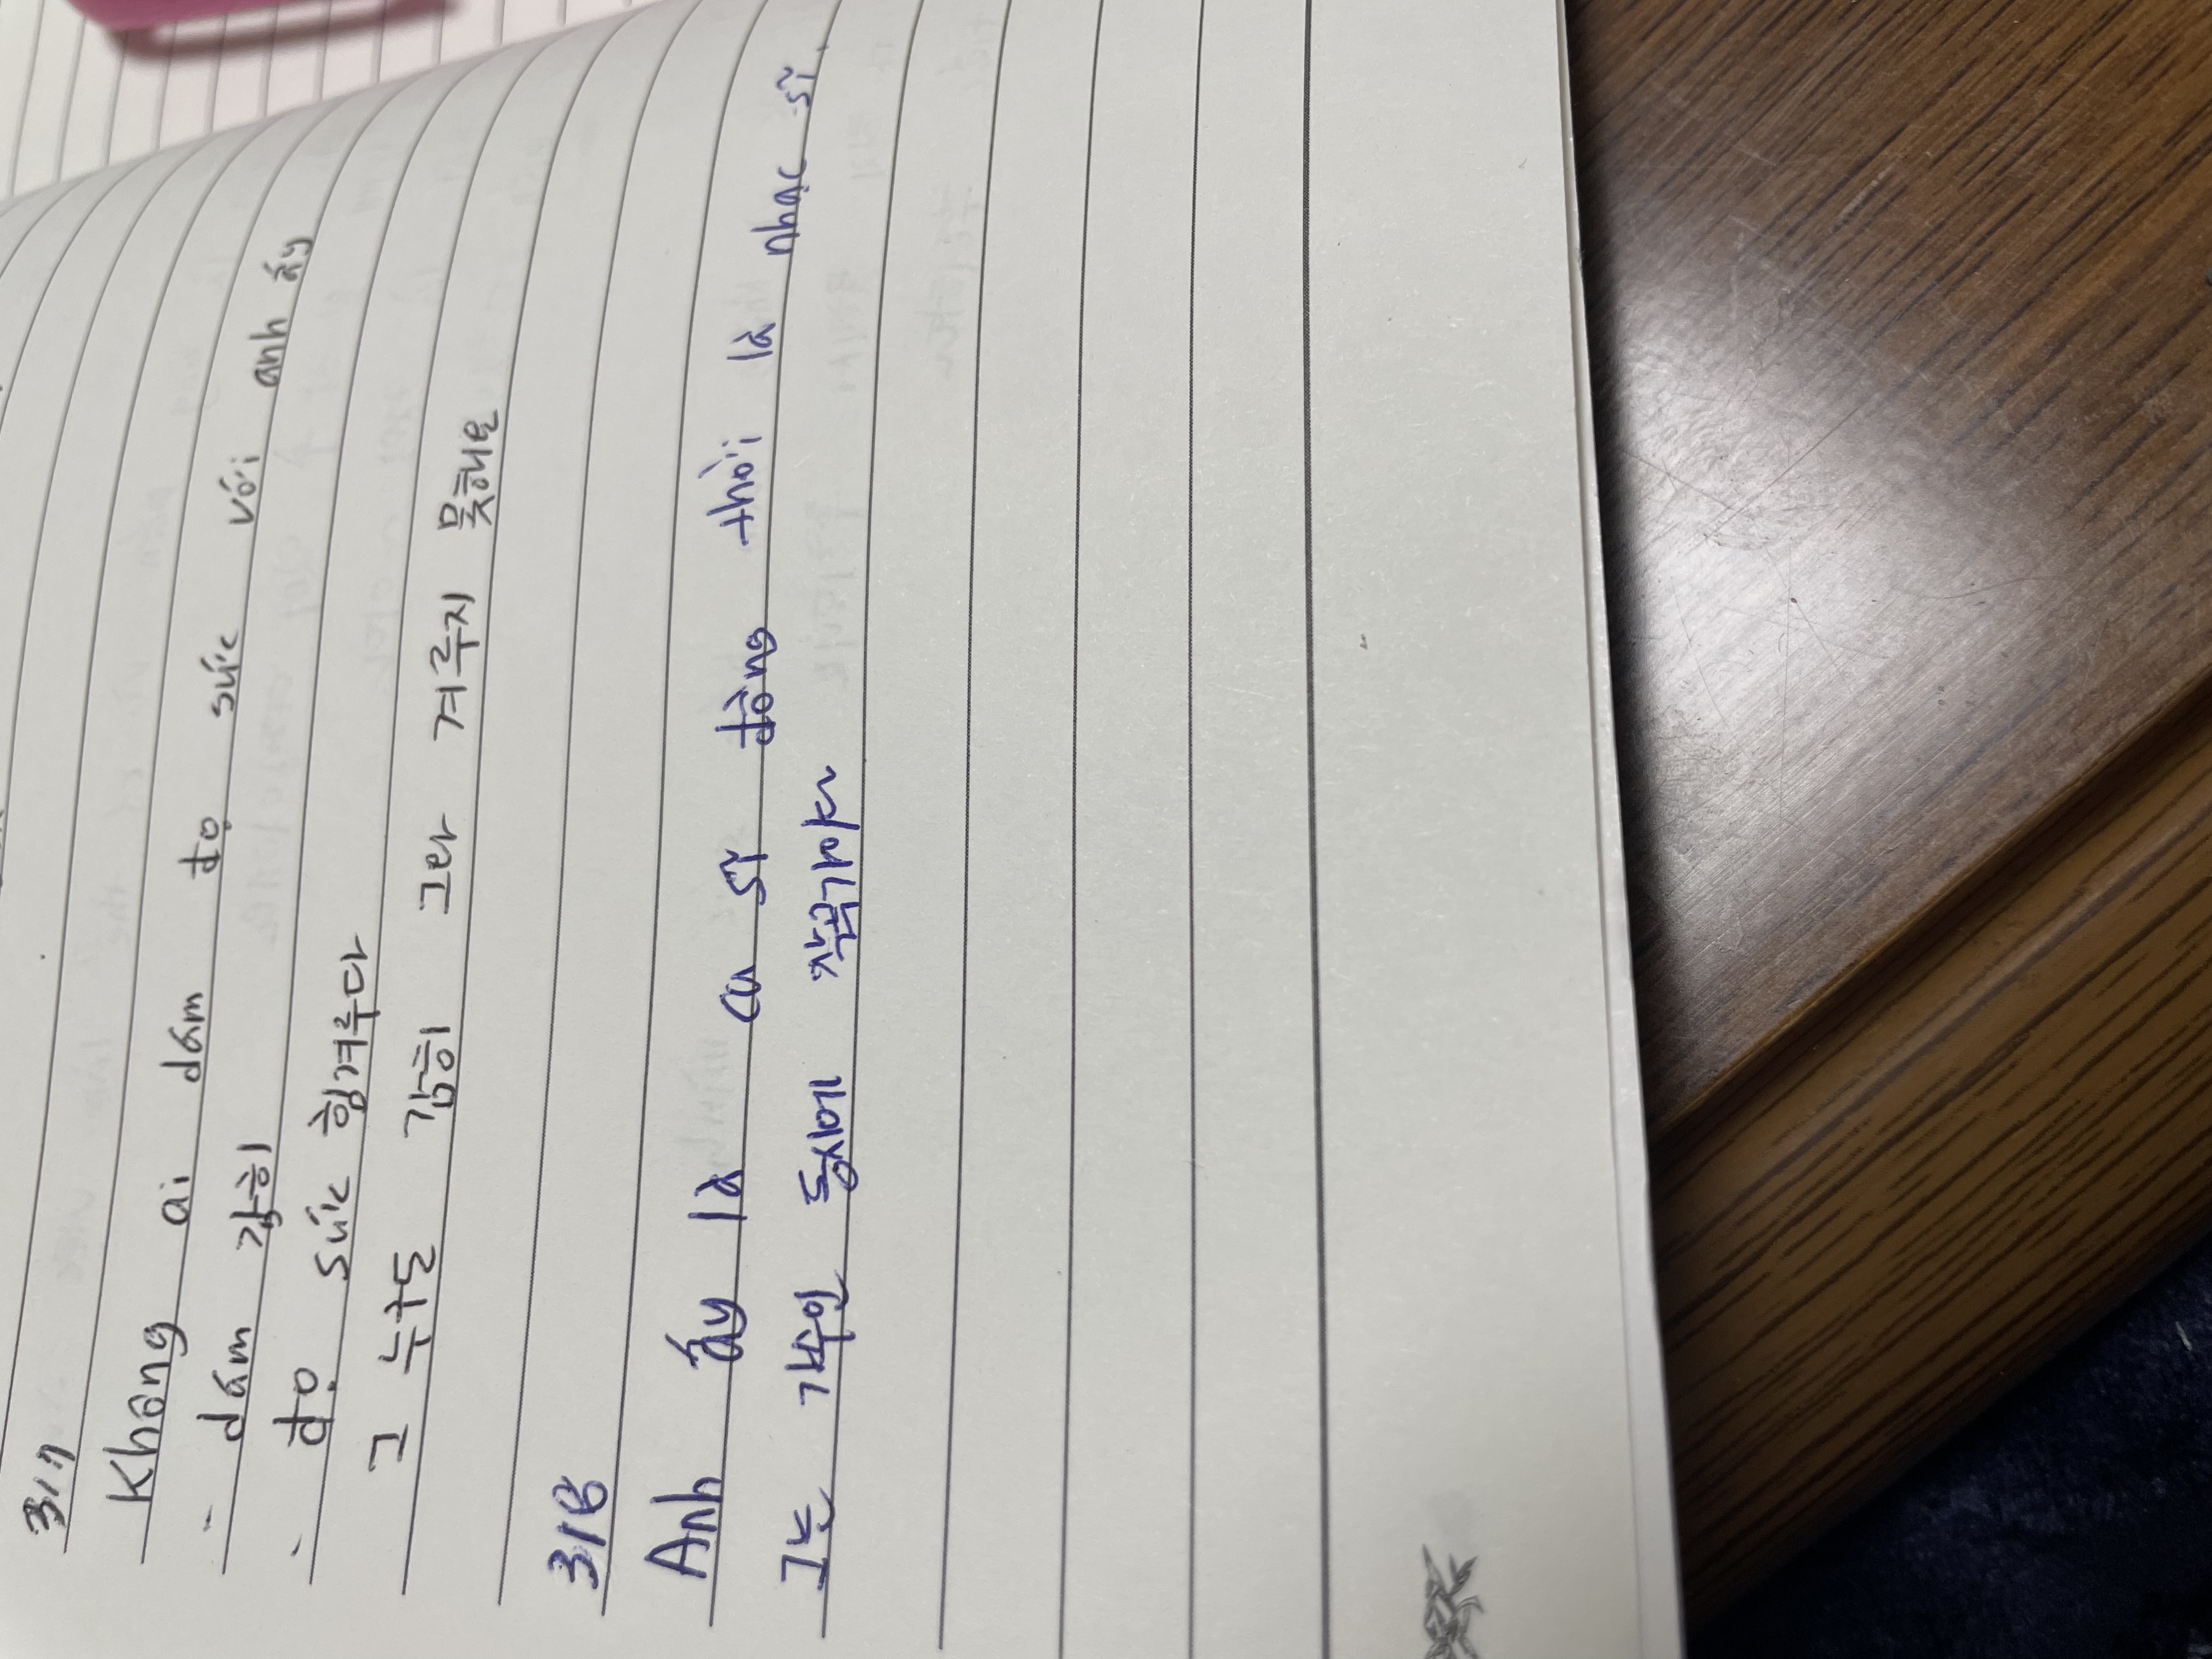 317
Không ai dám đọ sức với anh ấy
- dám 감히
- đọ sức 힘겨루다
그 누구도 감히 그와 겨루지 못해요
318
Anh ấy là ca sĩ đồng thời là nhạc sĩ.
그는 가수인 동시에 작곡가야~